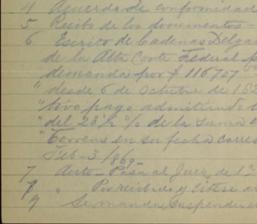 4 Acuerdo de conformidad
5 Recibo de los documentos -
6 Escrito de Cadenas Delga
de la Alta Corte Federal p
demanda por $ 116,707
"desde 6 de Octubre de 18
"tivo pago admitiendo
"del 23½ % de la suma
"Torrens en su fecha corres
Feb - 3/869 -
7 Auto - Pasa al Juez de 1ª
8 " Por recibido y cítese a
9 Se manda suspender